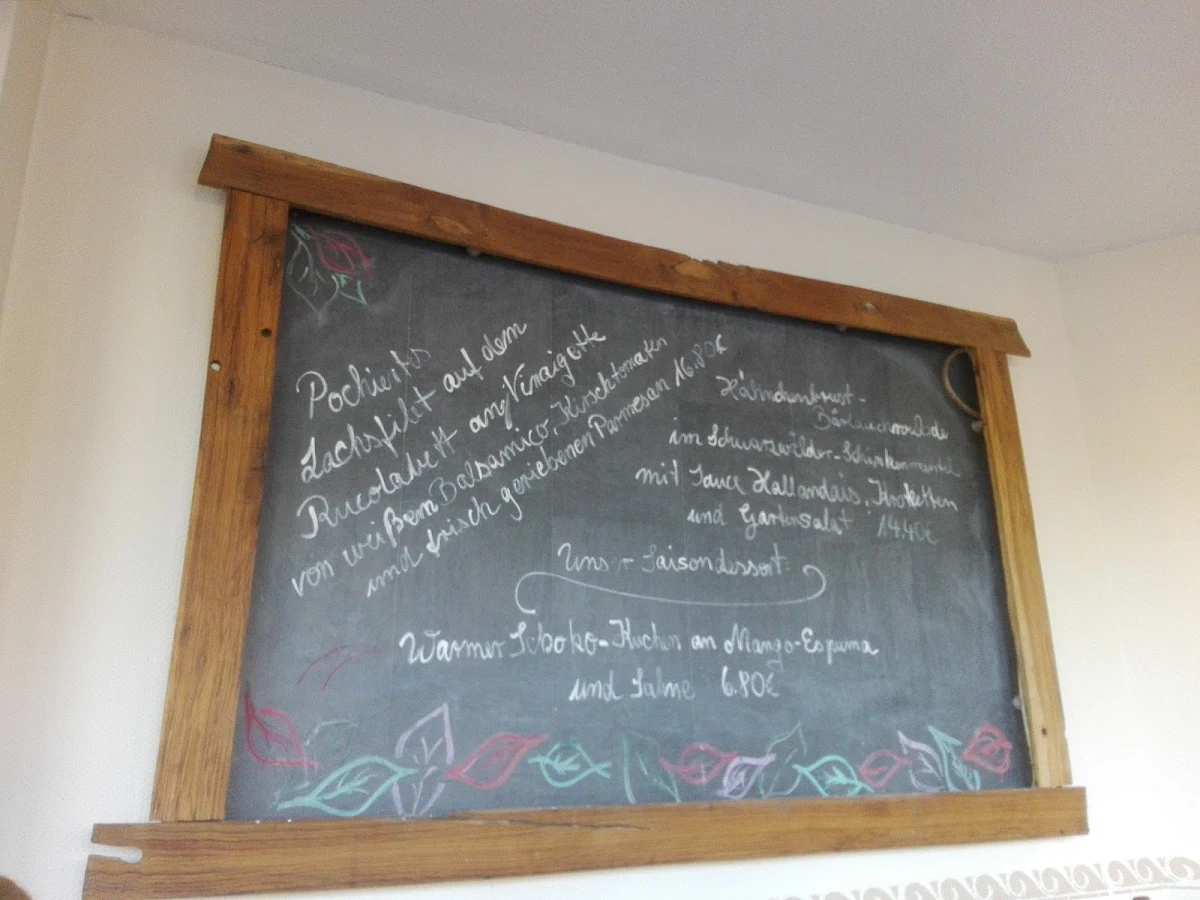 Pochiertes
Lachsfilet auf dem
Rucolabett an Vinaigotte
von weißem Balsamico, Kirschtomaten
und frisch geriebenen Parmesan 16.80€
Hähnchenbrust-
Bärlauchroulade
im Schwarzwälder-Schinkenmantel
mit Sauce Hallandais, Kroketten
und Gartensalat 14.40€
Unser Saisondessert:
Warmer Schoko-Kuchen an Mango-Espuma
und Sahne 6.80€